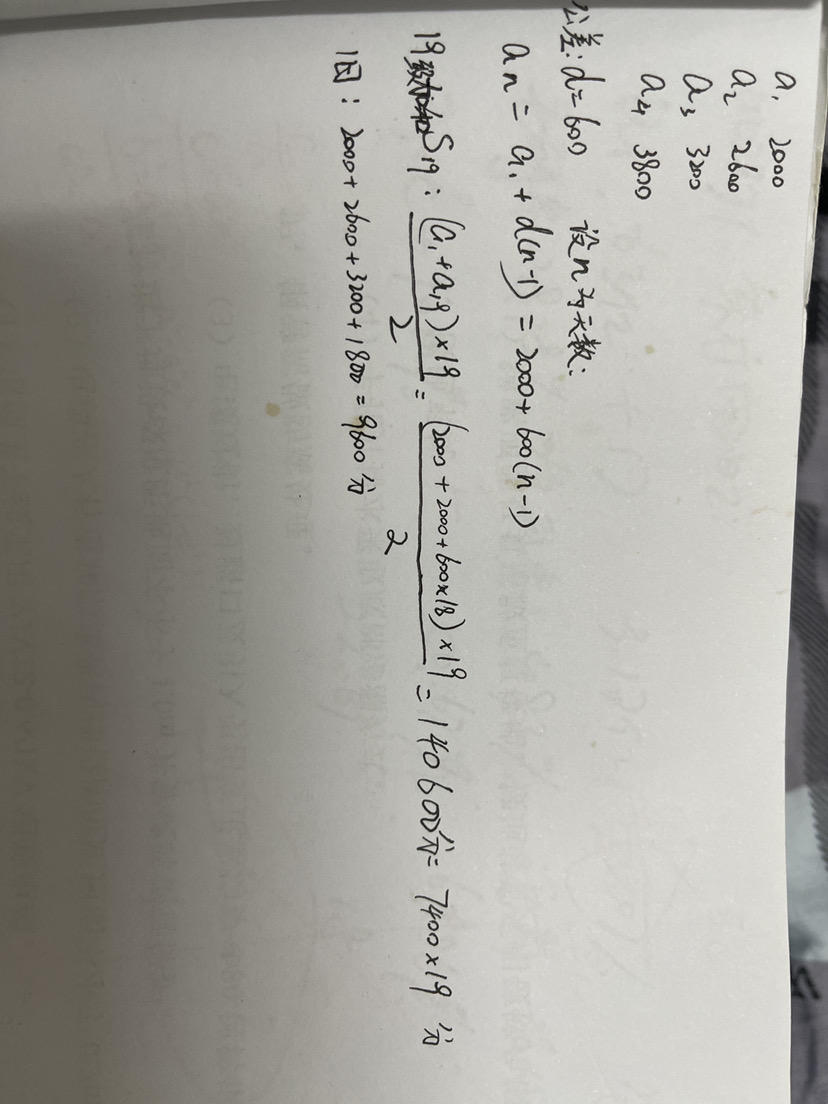 a₁ 2000
a₂ 2600
a₃ 3200
a₄ 3800
公差: d=600 设n为天数:
an = a₁ + d(n-1) = 2000 + 600(n-1)
19 S₁₉ : (a₁+a₁₉)×19/2 = (2000+2000+600×18)×19/2 = 140600分 = 7400×19 分
1日: 2000+2600+3200+1800=9600分